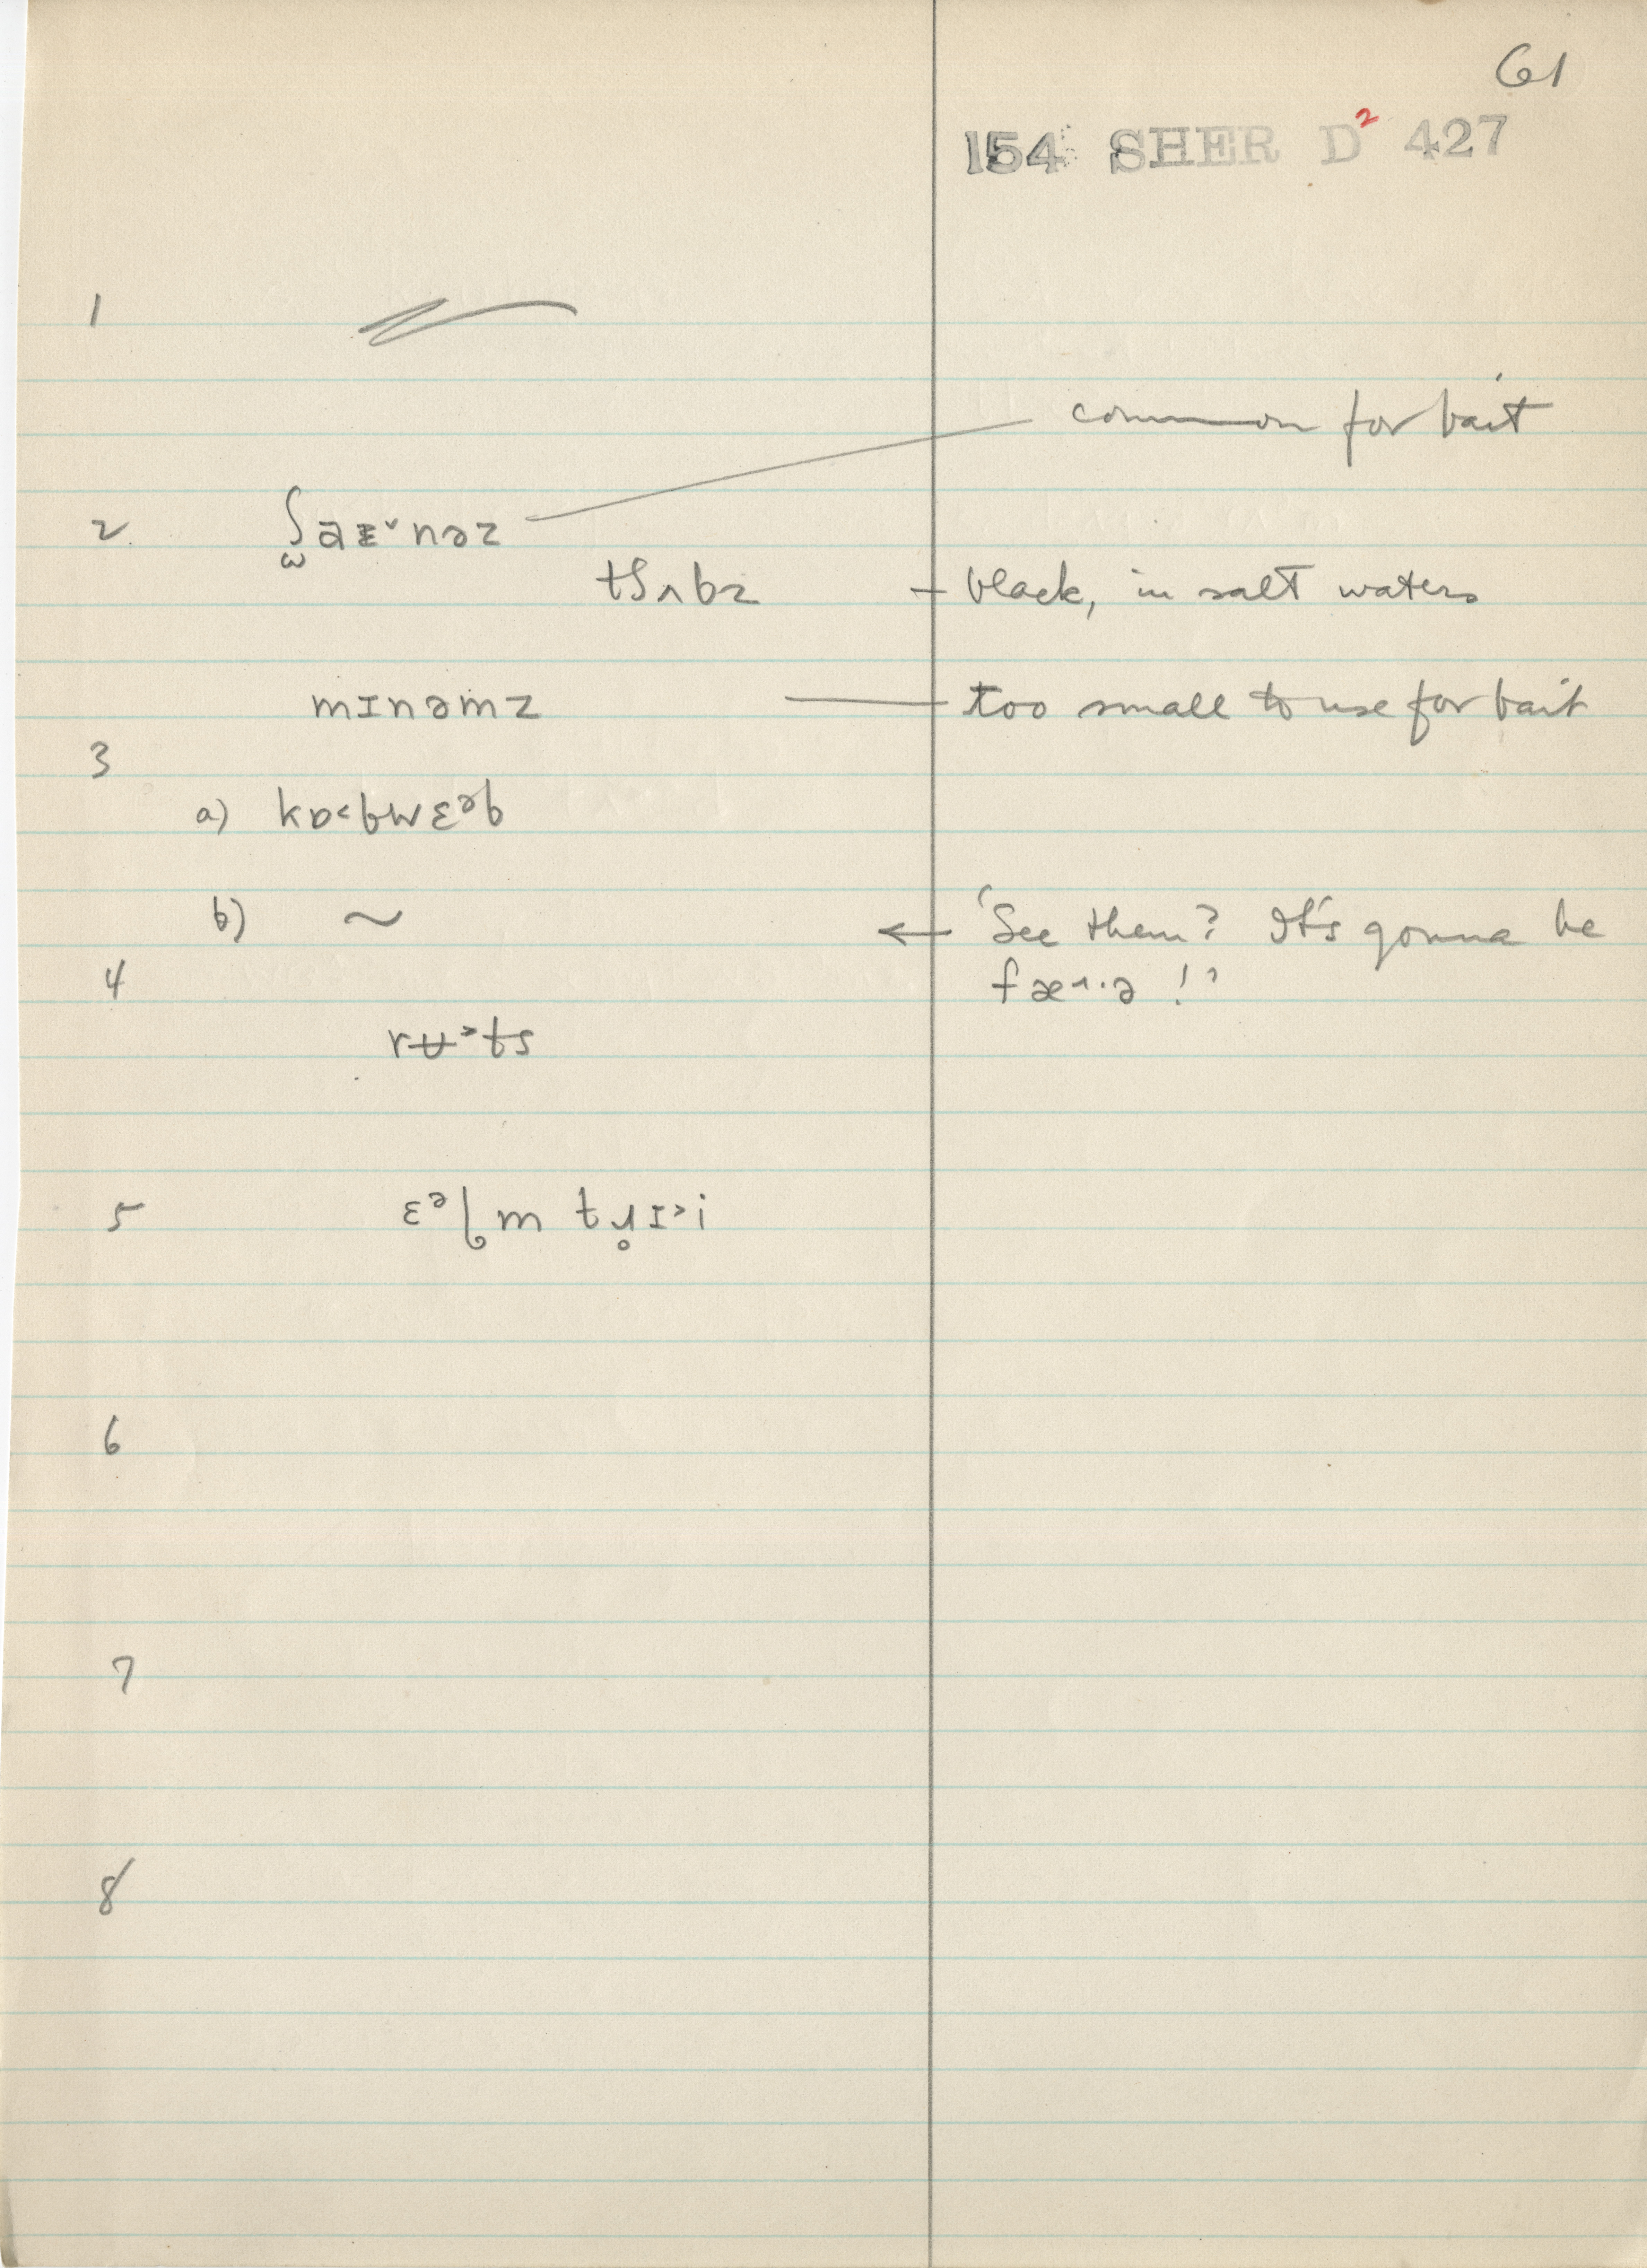 61
154 SHER D² 427
1
common for bait
2 ʃ̫aᵻ˅nəz
tʃʌbz — black, in salt waters
mɪnəmz — too small to use for bait
3
a) kɒ˂bwɛᵊb
b) ~ ← 'See them? It's gonna be
4 fæ˄·ə!'
rʉ˃ts
5 ɛᵊɫm tɹ̥ɪ˃i
6
7
8